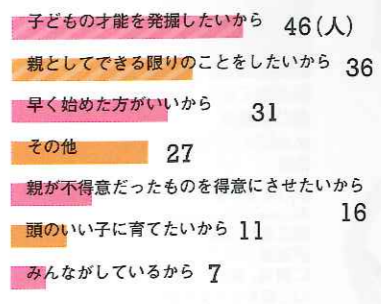 子どもの才能を発掘したいから 46(人)
親としてできる限りのことをしたいから 36
早く始めた方がいいから 31
その他 27
親が不得意だったものを得意にさせたいから
16
頭のいい子に育てたいから 11
みんながしているから 7